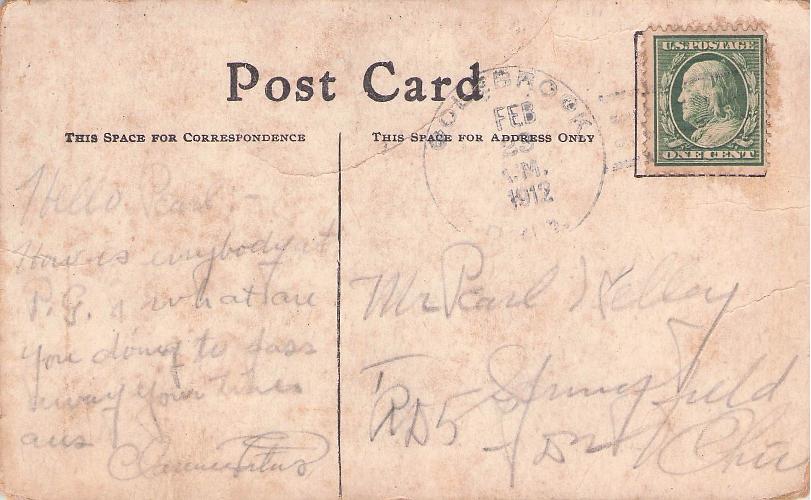 Post Card
THIS SPACE FOR CORRESPONDENCE
THIS SPACE FOR ADDRESS ONLY
U.S. POSTAGE
ONE CENT
FEB
A.M.
1912
Hello Pearl:
How is everybody at
P.G. & what are
you doing to pass
away your times
ans
Mr Pearl Kelley
Springfield
RD5
Ohio